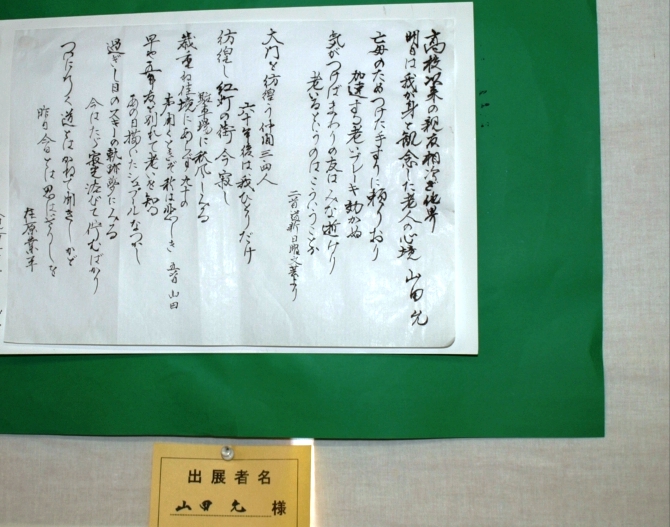 高校以来の親友相次ぎ他界
明日は我が身と観念した老人の心境 山田允
亡母のためつけた手すりに頼りおり
加速する老いブレーキ効かぬ
気がつけばまわりの友はみな逝けり
老いるというのはこういうことか
二首道新日曜文芸より
大門を彷徨う仲間三四人
六十年後は我ひとりだけ
彷徨し紅灯の街今寂し
駐車場に秋風しみる
歳重ね佳境にあらず九十の
秋は悲しき 山田
早や 友 別れて老いを知る
あの日描いたシュプールなつかし
過ぎし日のスキーの軌跡夢にみる
今はただ むばかり
つひにゆく道とはかねて聞きしかど
昨日今日とは思はざりしを
在原業平
出展者名
山田允様